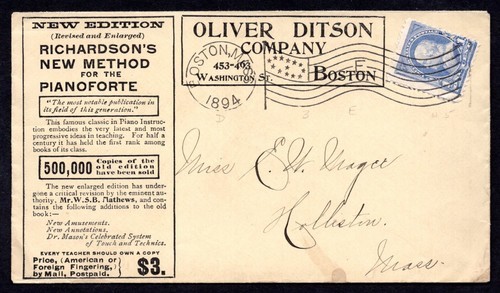 NEW EDITION
(Revised and Enlarged)
RICHARDSON'S
NEW METHOD
FOR THE
PIANOFORTE
"The most notable publication in
its field of this generation."
This famous classic in Piano Instruc-
tion embodies the very latest and most
progressive ideas in teaching. For half a
century it has held the first rank among
books of its class.
500,000 Copies of the
old edition
have been sold
The new enlarged edition has under-
gone a critical revision by the eminent au-
thority, Mr. W. S. B. Mathews, and con-
tains the following additions to the old
book:—
New Amusements.
New Annotations.
Dr. Mason's Celebrated System
of Touch and Technics.
EVERY TEACHER SHOULD OWN A COPY
Price, (American or
Foreign Fingering,)
by Mail, Postpaid.
$3.
OLIVER DITSON
COMPANY
453-463
WASHINGTON ST.
BOSTON
BOSTON, MASS.
1894
F
Miss E. W. Magee
Holliston
Mass.